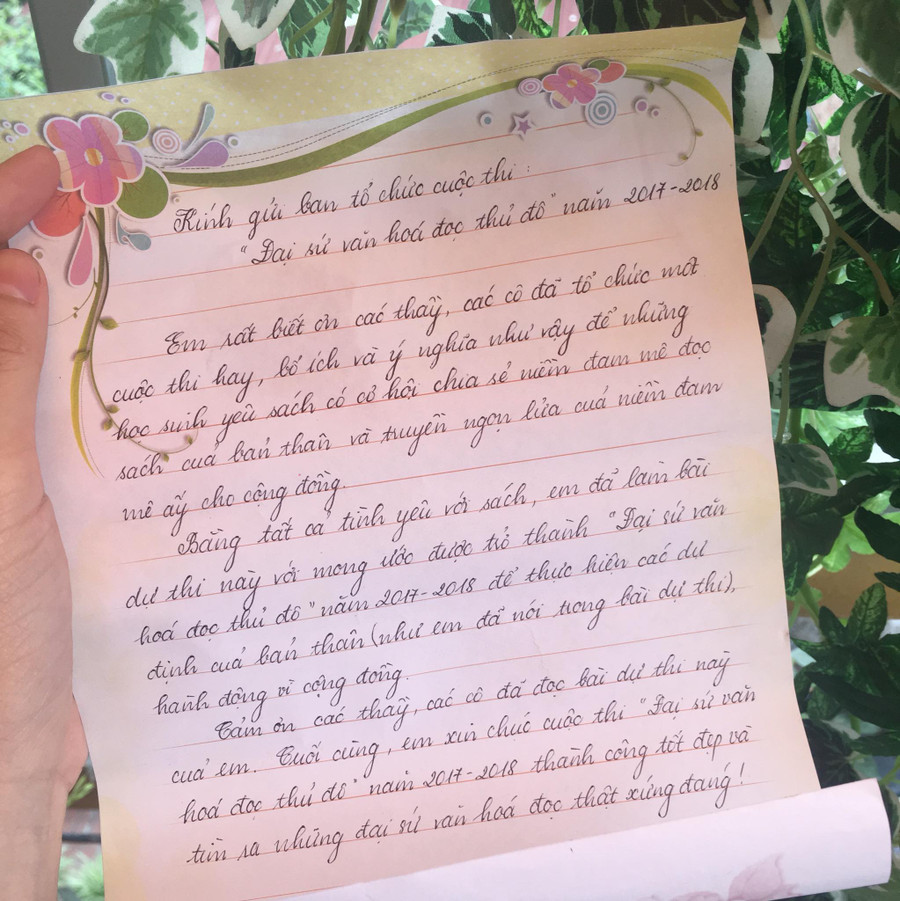 Kính gửi ban tổ chức cuộc thi:
"Đại sứ văn hoá đọc thủ đô" năm 2017-2018
Em rất biết ơn các thầy, các cô đã tổ chức một
cuộc thi hay, bổ ích và ý nghĩa như vậy để những
học sinh yêu sách có cơ hội chia sẻ niềm đam mê đọc
sách của bản thân và truyền ngọn lửa của niềm đam
mê ấy cho cộng đồng.
Bằng tất cả tình yêu với sách, em đã làm bài
dự thi này với mong ước được trở thành "Đại sứ văn
hoá đọc thủ đô" năm 2017-2018 để thực hiện các dự
định của bản thân (như em đã nói trong bài dự thi),
hành động vì cộng đồng.
Cảm ơn các thầy, các cô đã đọc bài dự thi này
của em. Cuối cùng, em xin chúc cuộc thi "Đại sứ văn
hoá đọc thủ đô" năm 2017-2018 thành công tốt đẹp và
tìm ra những đại sứ văn hoá đọc thật xứng đáng!